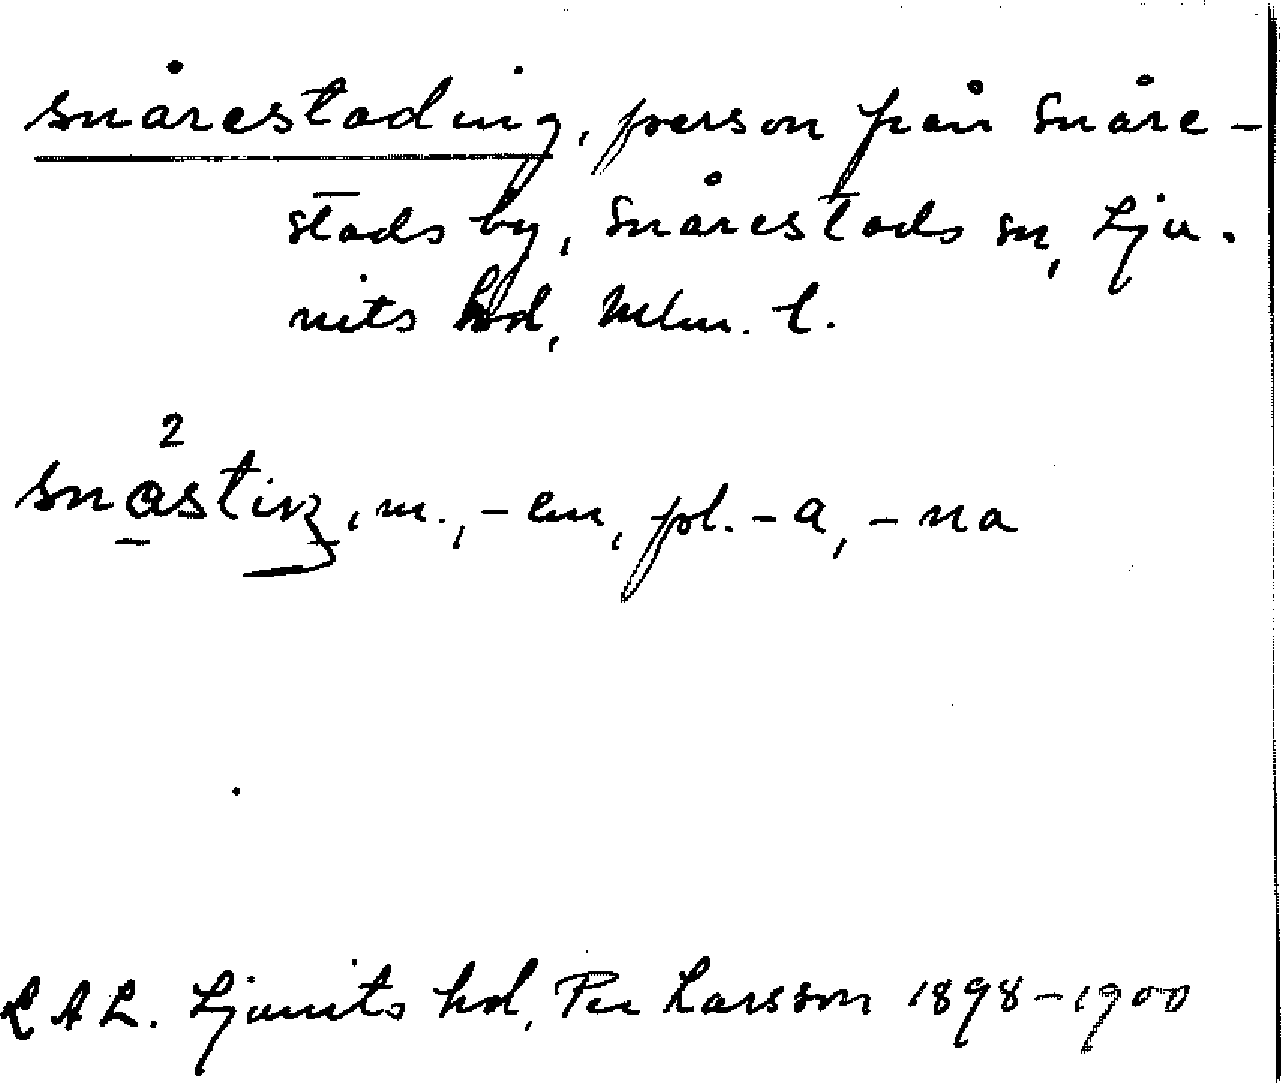 snårestading, person från Snåre-
stads by, Snårestads sn, Lju-
nits hd, Mlm. l.
2
m., -en, pl. -a, -na
L A L. Ljunits hd, Per Larsson 1898-1900